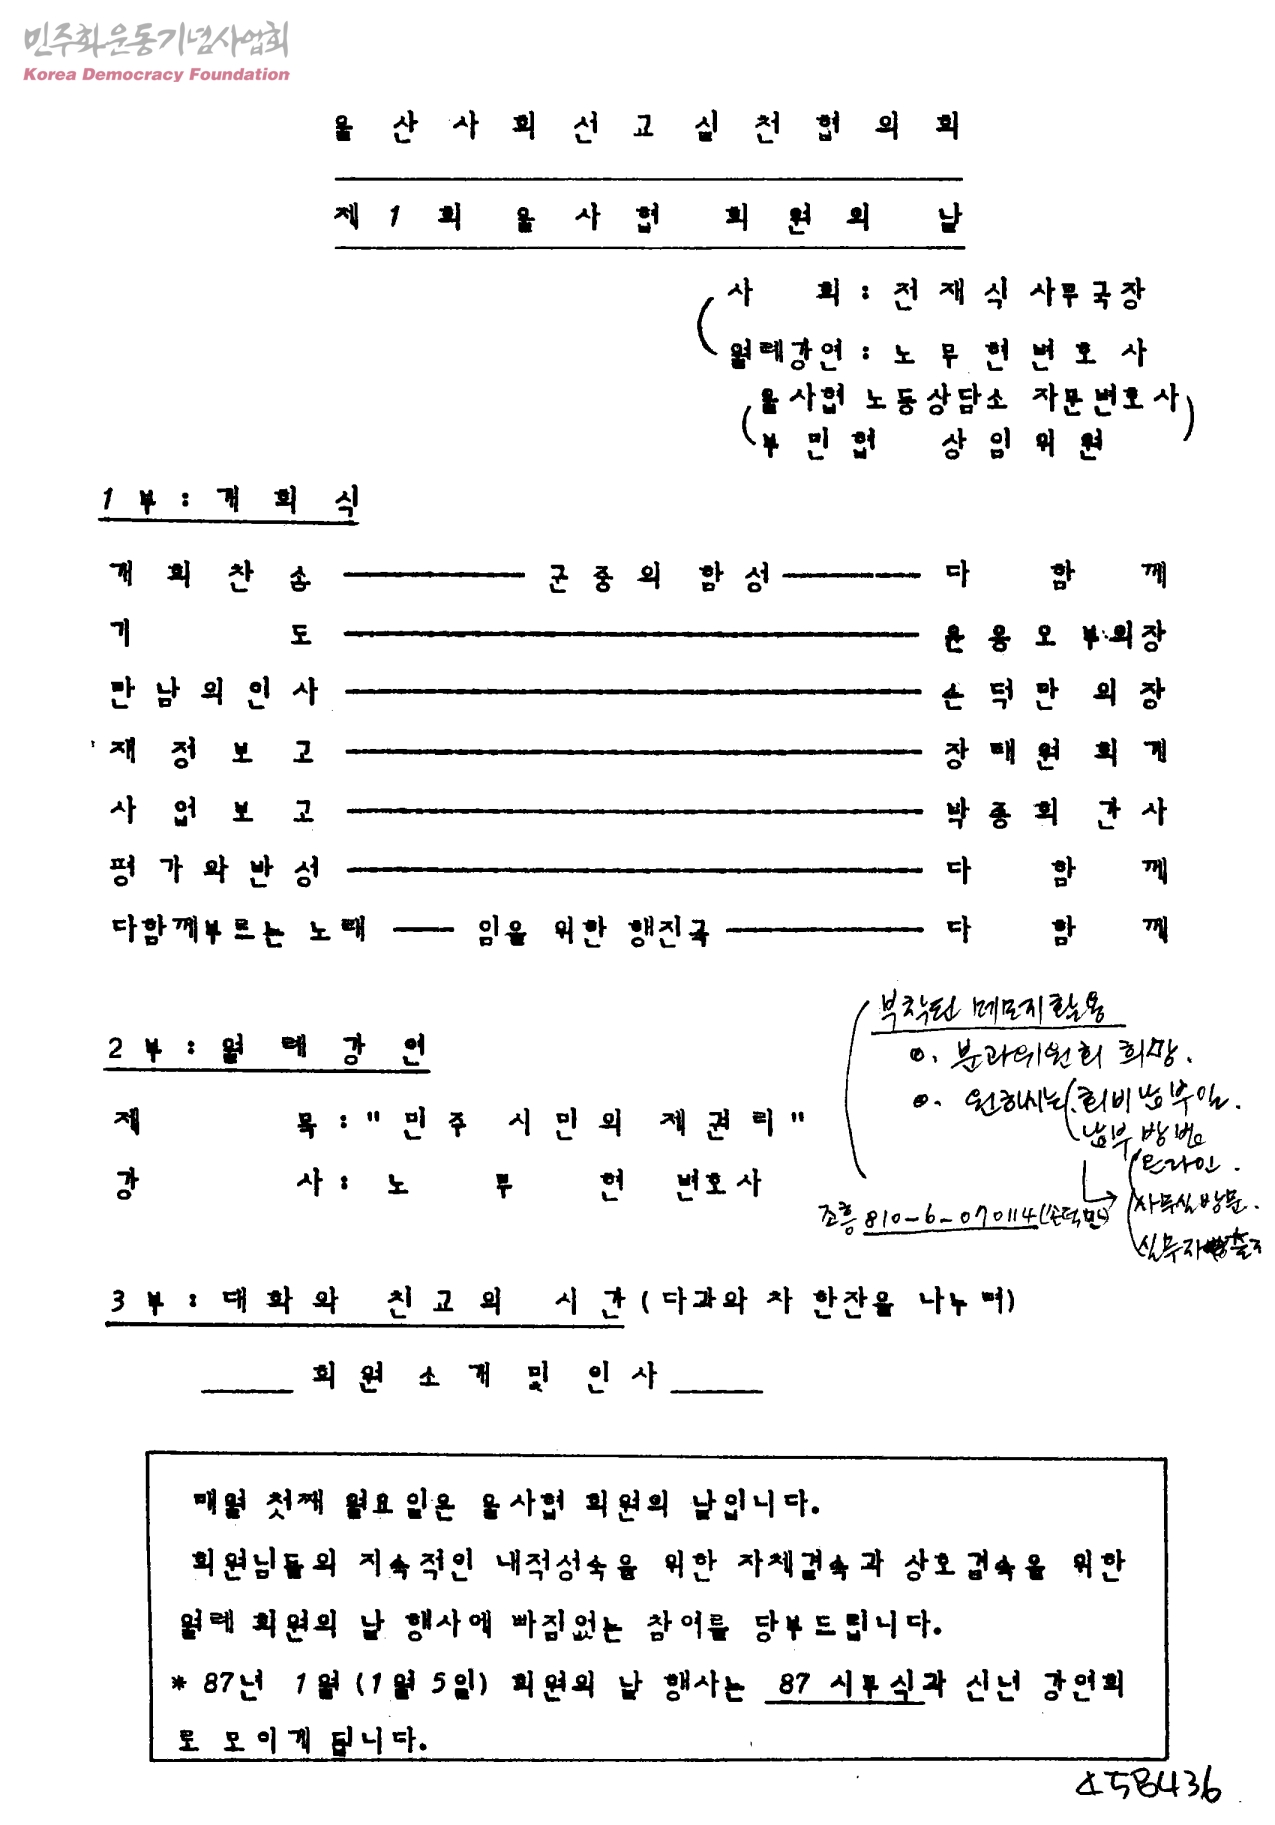 민주화운동기념사업회
Korea Democracy Foundation
울 산 사 회 선 교 실 천 협 의 회
제 1 회 울 사 협 회 원 의 날
사 회 : 전 재 식 사무국장
월례강연 : 노 무 현 변 호 사
울사협 노동상담소 자문변호사
부 민 협 상 임 위 원
1 부 : 개 회 식
개 회 찬 송 ——— 군 중 의 함 성 ——— 다 함 께
기 도 ——— 윤 응 오 부의장
만 남 의 인 사 ——— 손 덕 만 의 장
재 정 보 고 ——— 장 태 원 회 계
사 업 보 고 ——— 박 종 희 간 사
평 가 와 반 성 ——— 다 함 께
다함께부르는 노래 —— 임을 위한 행진곡 ——— 다 함 께
부착된 메모지활용
o. 분과위원회 희망.
o. 원하시는 회비납부일.
납부방법
온라인.
사무실방문.
실무자 방출
조흥 810-6-070114 (손덕만)
2 부 : 월 례 강 연
제 목 : " 민 주 시 민 의 제 권 리 "
강 사 : 노 무 현 변호사
3 부 : 대 화 와 친 교 의 시 간 ( 다과와 차 한잔을 나누며 )
회 원 소 개 및 인 사
매월 첫째 월요일은 울사협 회원의 날입니다.
회원님들의 지속적인 내적성숙을 위한 자체결속과 상호결속을 위한
월례 회원의 날 행사에 빠짐없는 참여를 당부드립니다.
* 87년 1월 (1월 5일) 회원의 날 행사는 87 시무식과 신년 강연회
로 모이게 됩니다.
458436